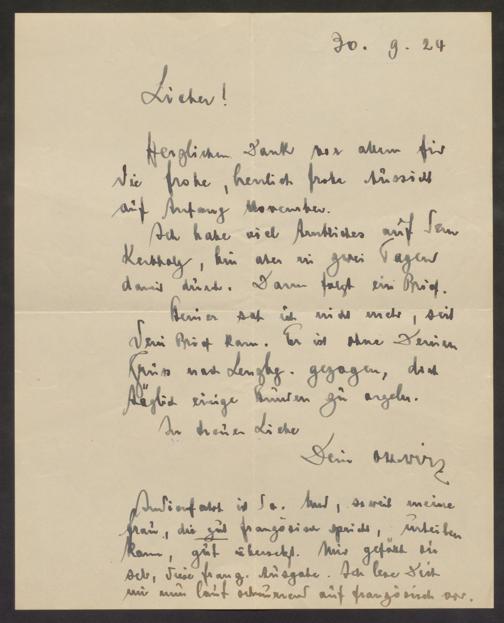 30. 9. 24
Lieber!
Herzlichen Dank vor allem für
die frohe, herrlich frohe Aussicht
auf Anfang November.
Ich habe viel Amtliches auf dem
Kerbholz, bin aber in zwei Tagen
damit durch. Dann folgt ein Brief.
Heiner sah ich nicht mehr, seit
Dein Brief kam. Er ist ohne Deinen
Gruss nach Lenzbg. gezogen, dort
täglich einige Stunden zu orgeln.
In treuer Liebe
Dein
Indienfahrt ist da. Und, soweit meine
Frau, die gut französisch spricht, urteilen
kann, gut übersetzt. Mir gefällt sie
sehr, diese franz. Ausgabe. Ich lese Dich
mir nun laut auf französisch vor.